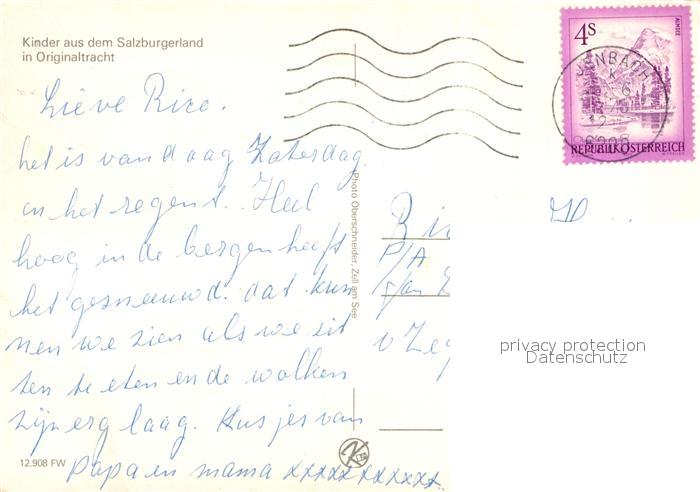 Kinder aus dem Salzburgerland
in Originaltracht
4S
ALMSEE
REPUBLIK ÖSTERREICH
JENBACH
Lieve Rico.
het is vandaag Zaterdag
en het regent. Heel
hoog in de bergen heeft
het gesneeuwd. dat kun
nen we zien als we sit
ten te eten en de wolken
zijn erg laag. Kusjes van
Papa en mama xxxxxxxxxxxx
Photo Oberschneider, Zell am See
P/A
12.908 FW
privacy protection
Datenschutz